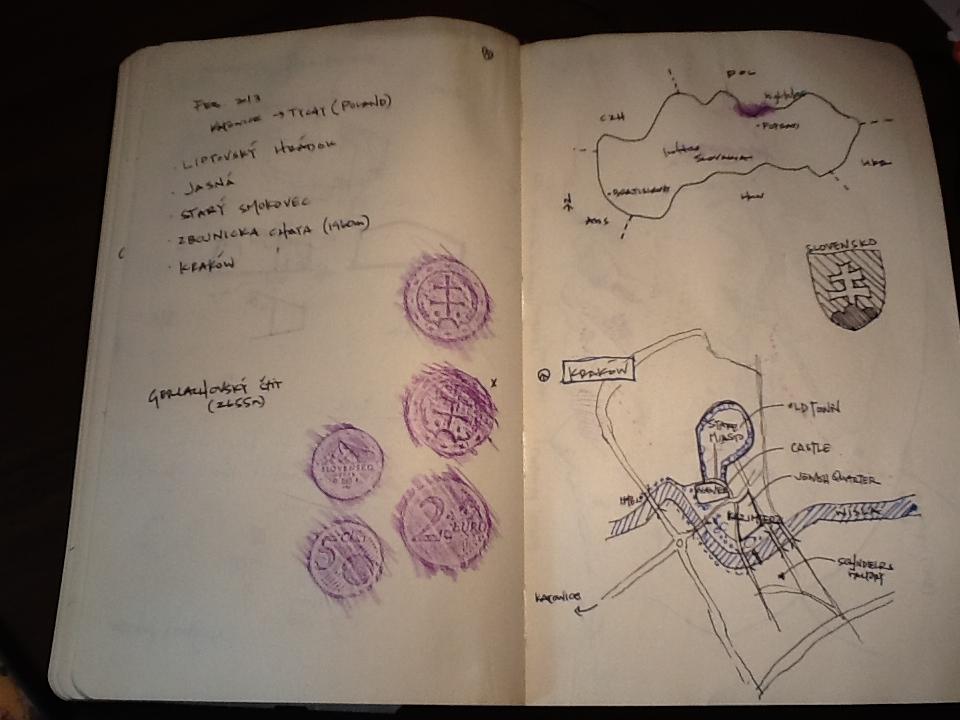 FEB 2013
KATOWICE → TYCHY (POLAND)
· LIPTOVSKÝ HRÁDOK
· JASNÁ
· STARÝ SMOKOVEC
· ZBOJNICKA CHATA (1960m)
· KRAKÓW
GERLACHOVSKÝ ŠTÍT
(2655m)
SLOVENSKO
2
EURO
50
POL
CZH
· POPRAD
SLOVAKIA
UKR
· BRATISLAVA
HUN
AUS
SLOVENSKO
KRAKÓW
OLD TOWN
STARE
MIASTO
CASTLE
WAWEL
JEWISH QUARTER
KAZIMIERZ
WISŁA
SCHINDLERS
FACTORY
KATOWICE